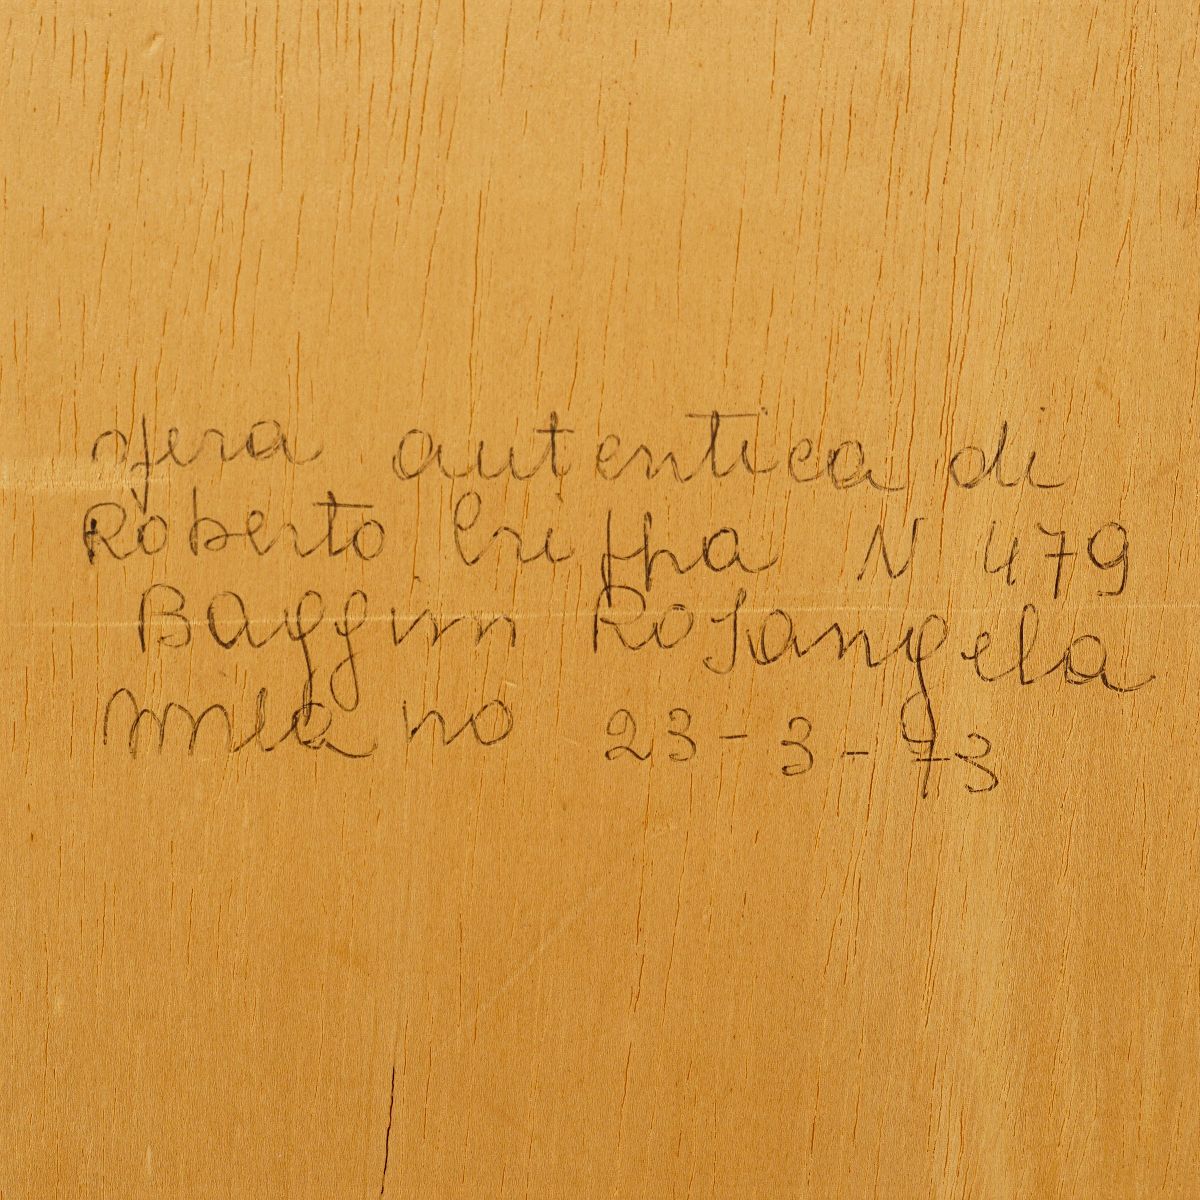 opera autentica di
Roberto Crippa N 479
Baggini Rosangela
Milano 23-3-73